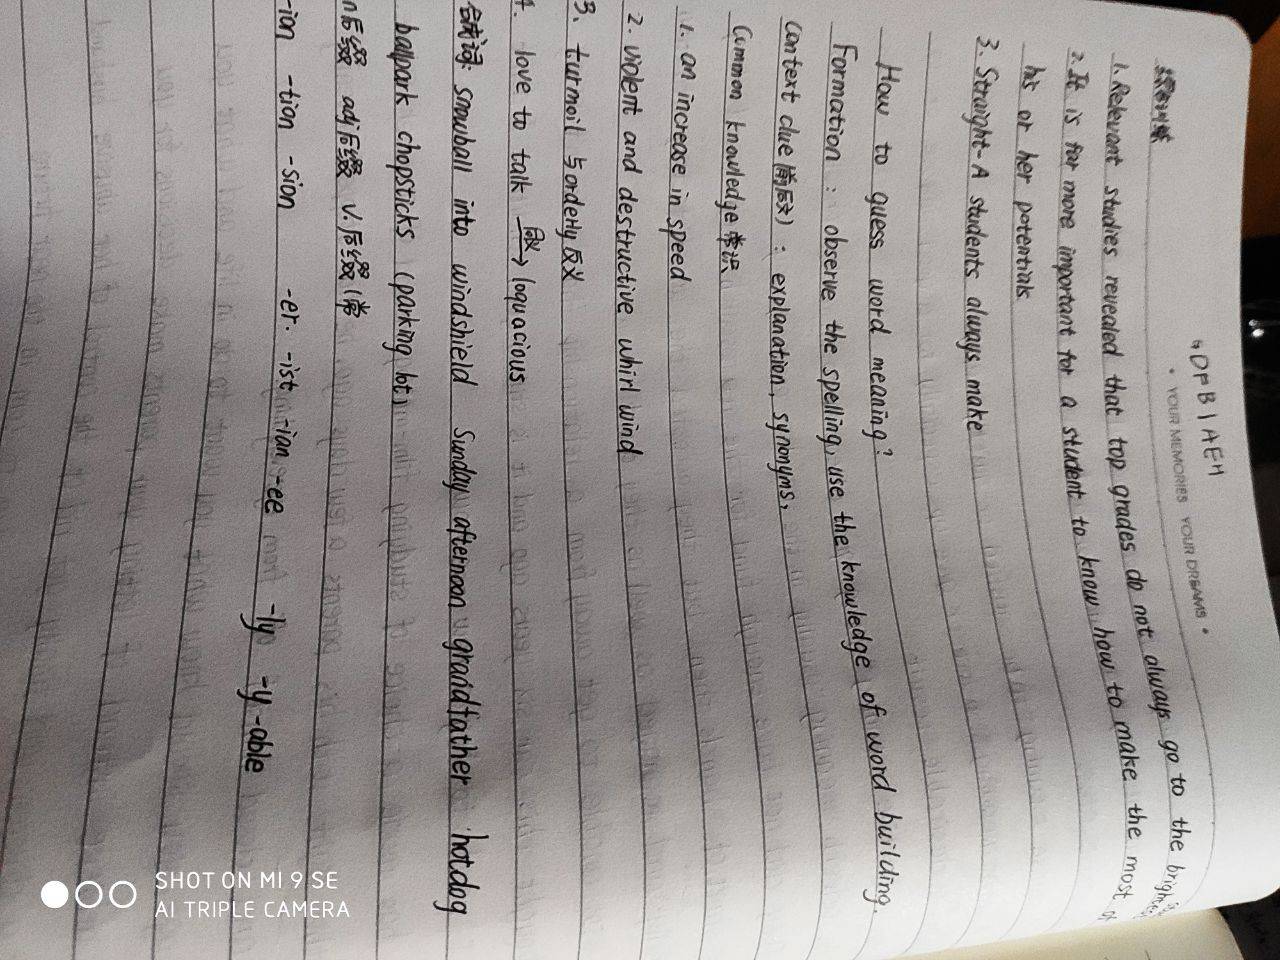 DPB1AEH
• YOUR MEMORIES YOUR DREAMS •
1. Relevant studies revealed that top grades do not always go to the brightest
2. It is far more important for a student to know how to make the most of
his or her potentials
3. Straight-A students always make
How to guess word meaning?
Formation : observe the spelling, use the knowledge of word building.
context clue (前后文) : explanation, synonyms,
Common knowledge 常识
1. an increase in speed
2. violent and destructive whirl wind
3. turmoil 与orderly反义
4. love to talk 同义→ loquacious
合成词: snowball into windshield Sunday afternoon grandfather hotdog
ballpark chopsticks (parking lot)
n后缀 adj后缀 v.后缀(常
-ion -tion -sion -er. -ist -ian -ee -ly -y -able
SHOT ON MI 9 SE
AI TRIPLE CAMERA